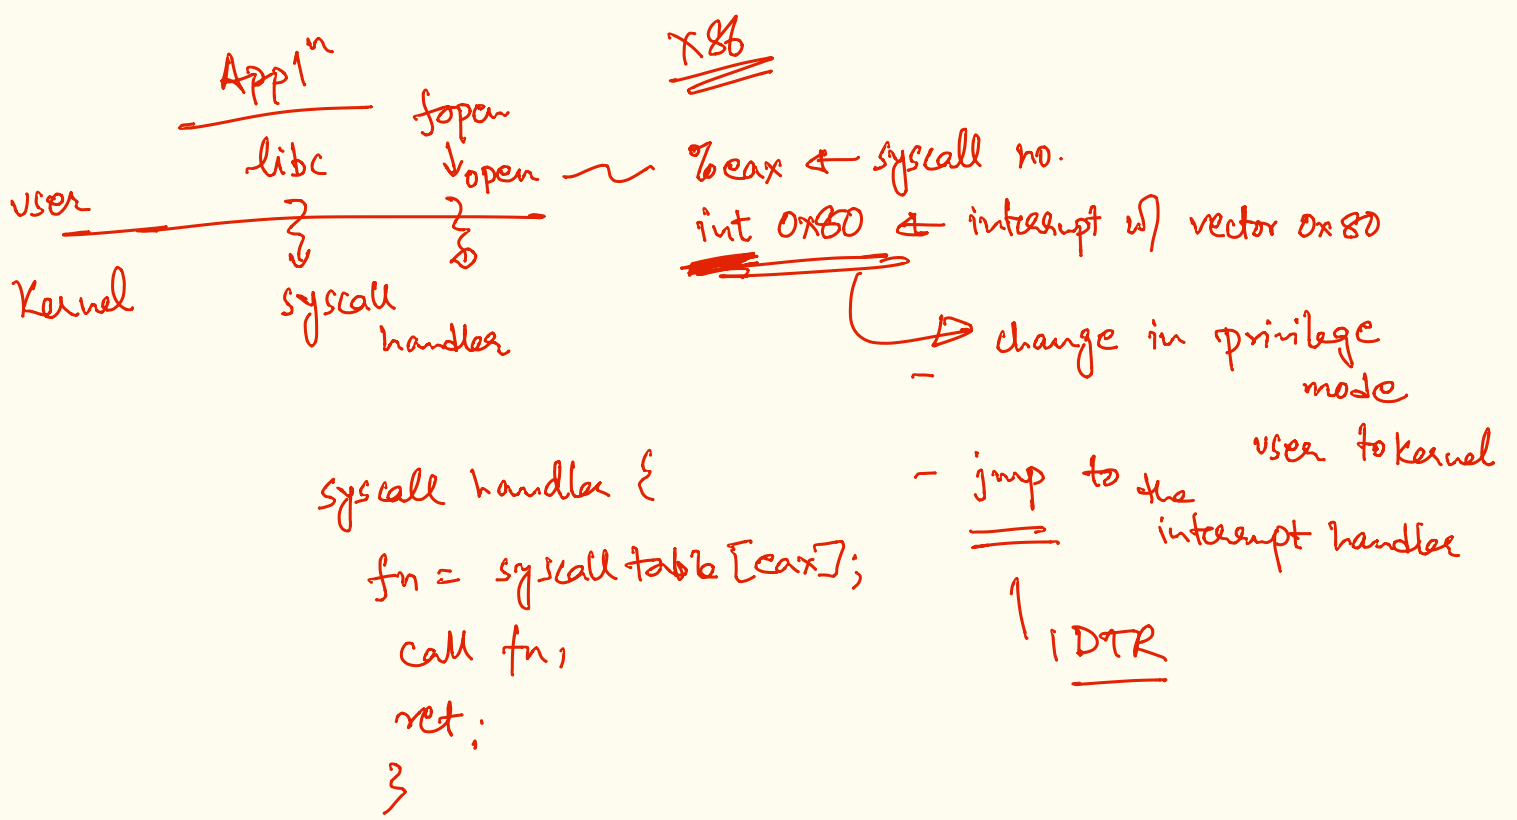 x86
Appl^n
fopen
libc
open
%eax ← syscall no.
user
int 0x80 ← interrupt w/ vector 0x80
Kernel
syscall
handler
change in privilege
mode
user to kernel
- jmp to the
interrupt handler
IDTR
syscall handler {
fn = syscall table [eax];
call fn;
ret;
}